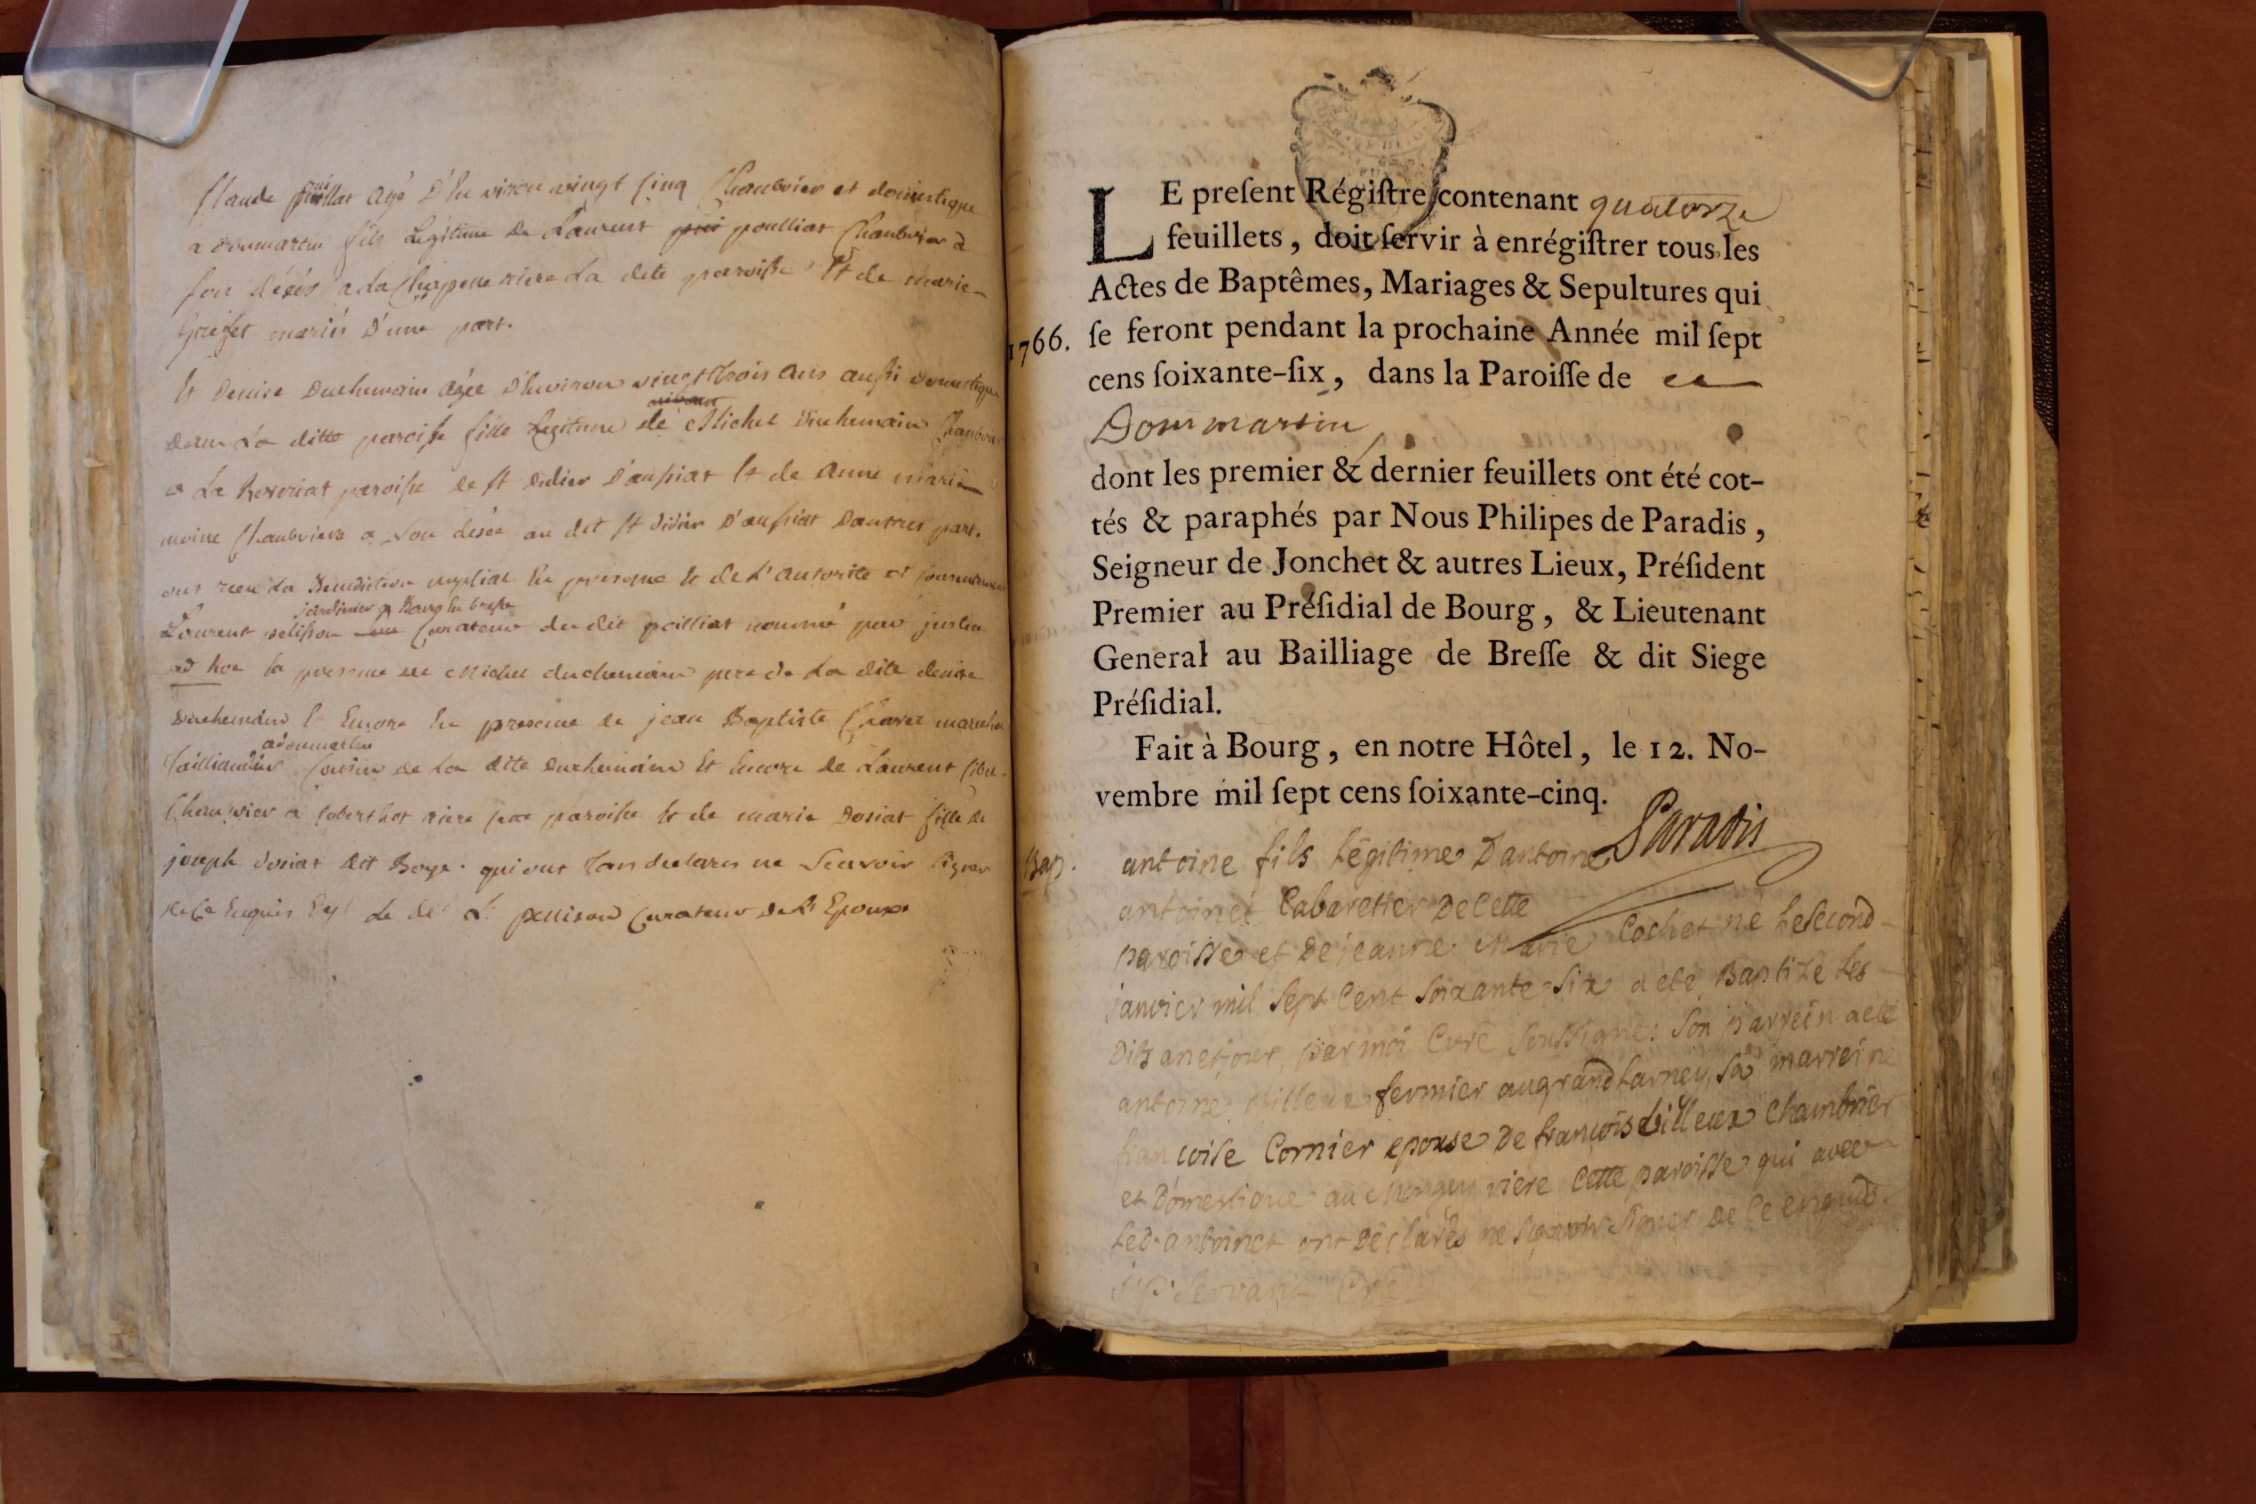 Claude poulliat agé d'Environ vingt Cinq Chanbrier et domestique
a donmartin fils Legitime de Laurent poulliat Chanbrier a
son décés a la Charpenne riere La dite paroisse Et de marie
mariés d'une part.
Et denise duchemain agée d'Environ vingt trois ans aussi domestique
dans La ditte paroisse fille Legitime de Michel duchemain
a La paroisse de st didier d'aussiat Et de anne marie
moine a son decés au dit st didier d'aussiat dautres part.
ont recu La Benediction nuptial En presence Et de L'autorité et
jardinier a Bourg En bresse
Laurent pelisson Curateur du dit poilliat nommé par justice
ad hoc la presence de Michel duchemain pere de La dite denise
duchemain Et Encore En presence de jean Baptiste
a donmartin
taillandier Cousin de La dite duchemain Et Encore de Laurent
Chanbrier a riere paroisse Et de marie dosiat fille de
joseph dosiat dit Boye. qui ont tous declarer ne Scavoir Signer
de Ce Enquis Le dit pelisson Curateur de L'Epoux.
LE preſent Régiſtre contenant quatorze
feuillets, doit ſervir à enrégiſtrer tous les
Actes de Baptêmes, Mariages & Sepultures qui
1766. ſe feront pendant la prochaine Année mil ſept
cens ſoixante-ſix, dans la Paroiſſe de
Dommartin
dont les premier & dernier feuillets ont été cot-
tés & paraphés par Nous Philipes de Paradis,
Seigneur de Jonchet & autres Lieux, Préſident
Premier au Préſidial de Bourg, & Lieutenant
General au Bailliage de Breſſe & dit Siege
Préſidial.
Fait à Bourg, en notre Hôtel, le 12. No-
vembre mil ſept cens ſoixante-cinq.
Paradis
Bap. antoine fils Légitime D'antoine
antoinet Cabaretier De Cette
paroisse et De jeanne Marie Cochet né Le Second
janvier mil Sept Cent Soixante-Six a eté Baptizé Les
Dits an et jour, par moi Curé Soussigné: Son parrein a eté
antoine fermier au grand tarney, Sa marreine
francoise Cornier epouse De francois Chambrier
et Domestique au riere Cette paroisse qui avec
Led. antoinet ont Déclarés ne Scavoir Signer De Ce enquis
Curé